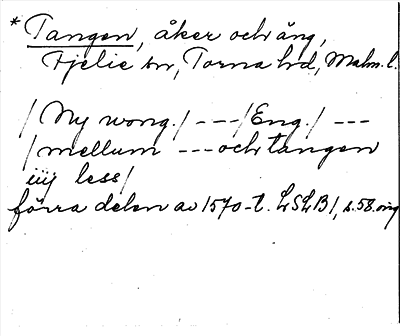 * Tangen, åker och äng,
Fjelie sn, Torna hd, Malm. l.
/Ny wong./ ---/Eng./ ---
/mellum --- och tangen
iiij less/
förra delen av 1570-t. LSLB 1, s. 58. orig